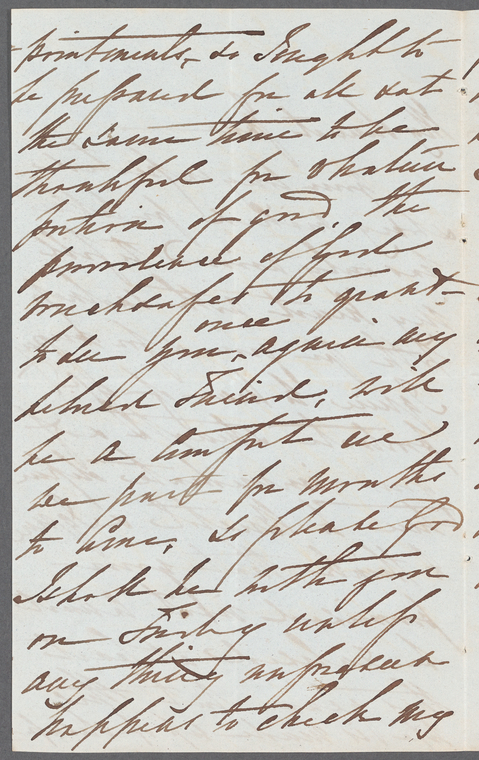 -pointments, so I ought to
be prepared for all & at
the same time to be
thankful for whatever
portion of good, the
providence of God
vouchsafes to grant -
once
to see you, again my
beloved Friend, will
be a comfort ere
we part for months
to come, so please God
I shall be with you
on Friday unless
any thing unforeseen
happens to check my